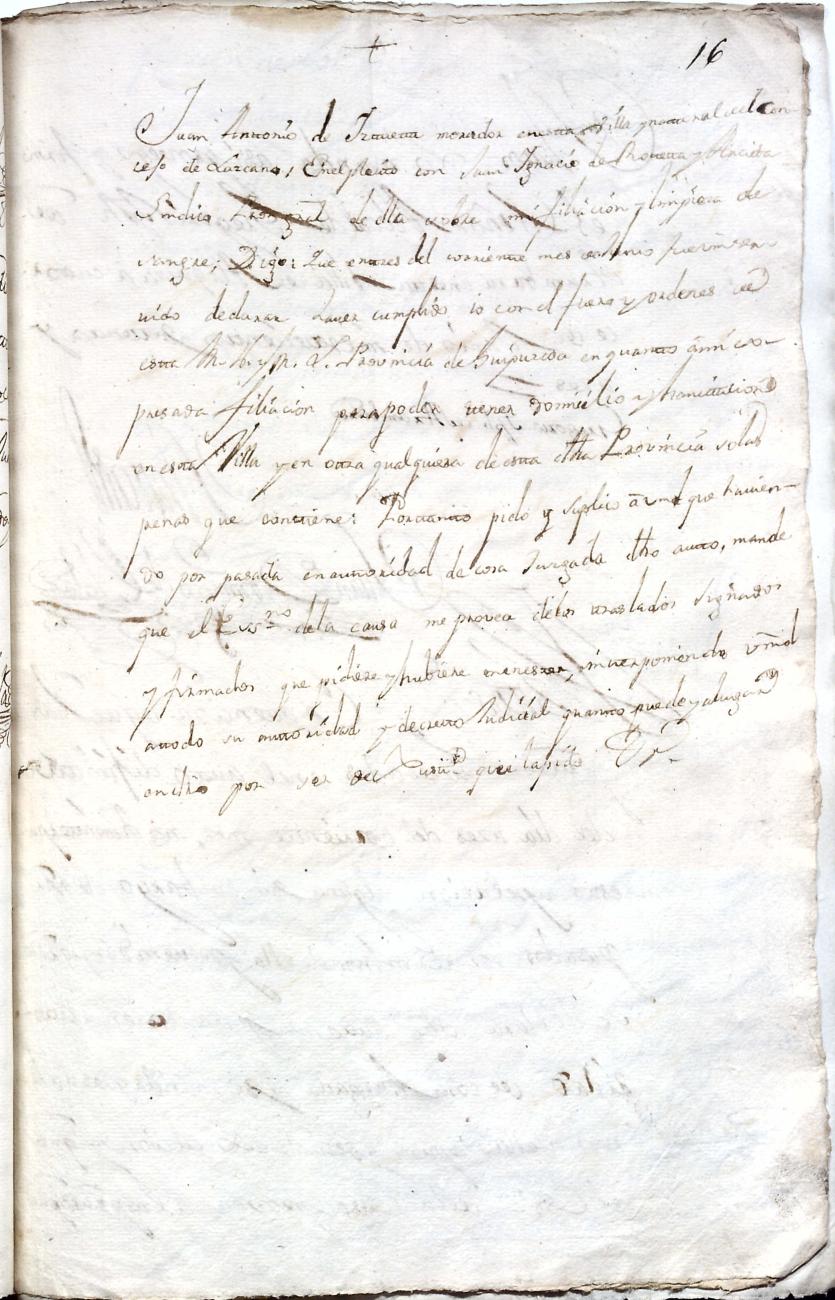 +
16
Juan Antonio de Iztueta morador en esta Villa y natural del Con-
cejo de Lazcano, En el pleito con Juan Ignacio de
Sindico Prov.gral de dha sobre mi filiación y limpieza de
sangre; Digo: Que en tres del corriente mes
vido declarar haver cumplido io con el fuero y ordenes de
esta M. N. y M. L. Provincia de Guipuzcoa en quanto a mi ex-
presada filiación para poder tener domicilio y havitacion
en esta Villa y en otra qualquiera de esta dha Provincia so las
penas que contiene: Por tanto pido y suplico a vmd que havien-
do por pasada en autoridad de cosa Juzgada dho auto, mande
que el Ess.no de la causa me provea de los traslados signados
y firmados que pidiere y hubiere menester, interponiendo vmd
a todo su autoridad y decreto Judicial quanto puede y a lugar
en dro por ser de Justi.a que la pido &.a